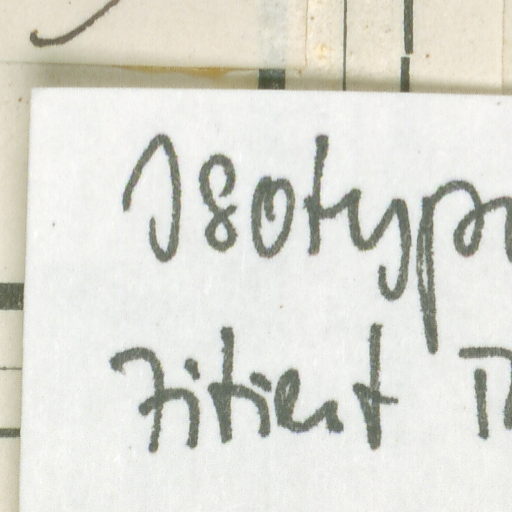 Isotyp
zitiert